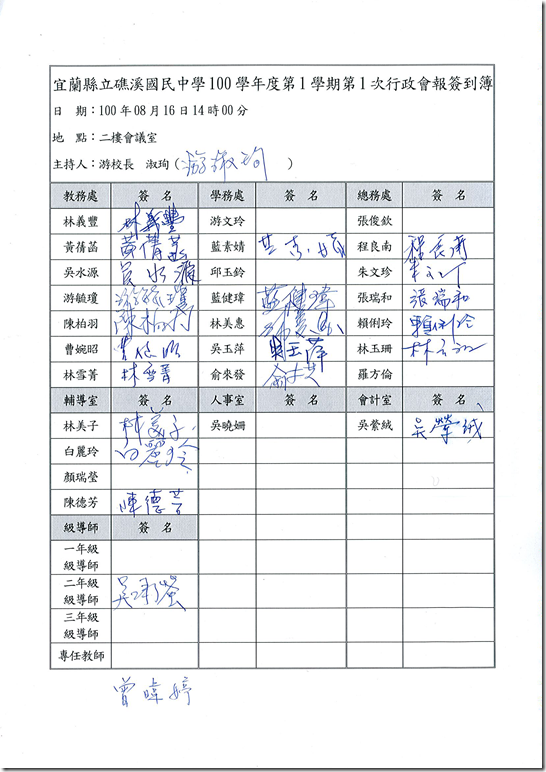 宜蘭縣立礁溪國民中學100學年度第1學期第1次行政會報簽到簿
日　期：100年08月16日14時00分
地　點：二樓會議室
主持人：游校長　淑珣（游淑珣　）
教務處　簽　名　學務處　簽　名　總務處　簽　名
林義豐　林義豐　游文玲　張俊欽
黃蒨菡　黃蒨菡　藍素婧　程良南　程良南
吳水源　吳水源　邱玉鈴　朱文珍
游毓瓊　游毓瓊　藍健瑋　藍健瑋　張瑞和　張瑞和
陳柏羽　陳柏羽　林美惠　賴俐玲　賴俐玲
曹婉昭　吳玉萍　吳玉萍　林玉珊
林雪菁　林雪菁　俞來發　羅方倫
輔導室　簽　名　人事室　簽　名　會計室　簽　名
林美子　林美子　吳曉姍　吳縈絨　吳縈絨
白麗玲　白麗玲
顏瑞瑩
陳德芳　陳德芳
級導師　簽　名
一年級
級導師
二年級
級導師
三年級
級導師
專任教師
曾暐婷